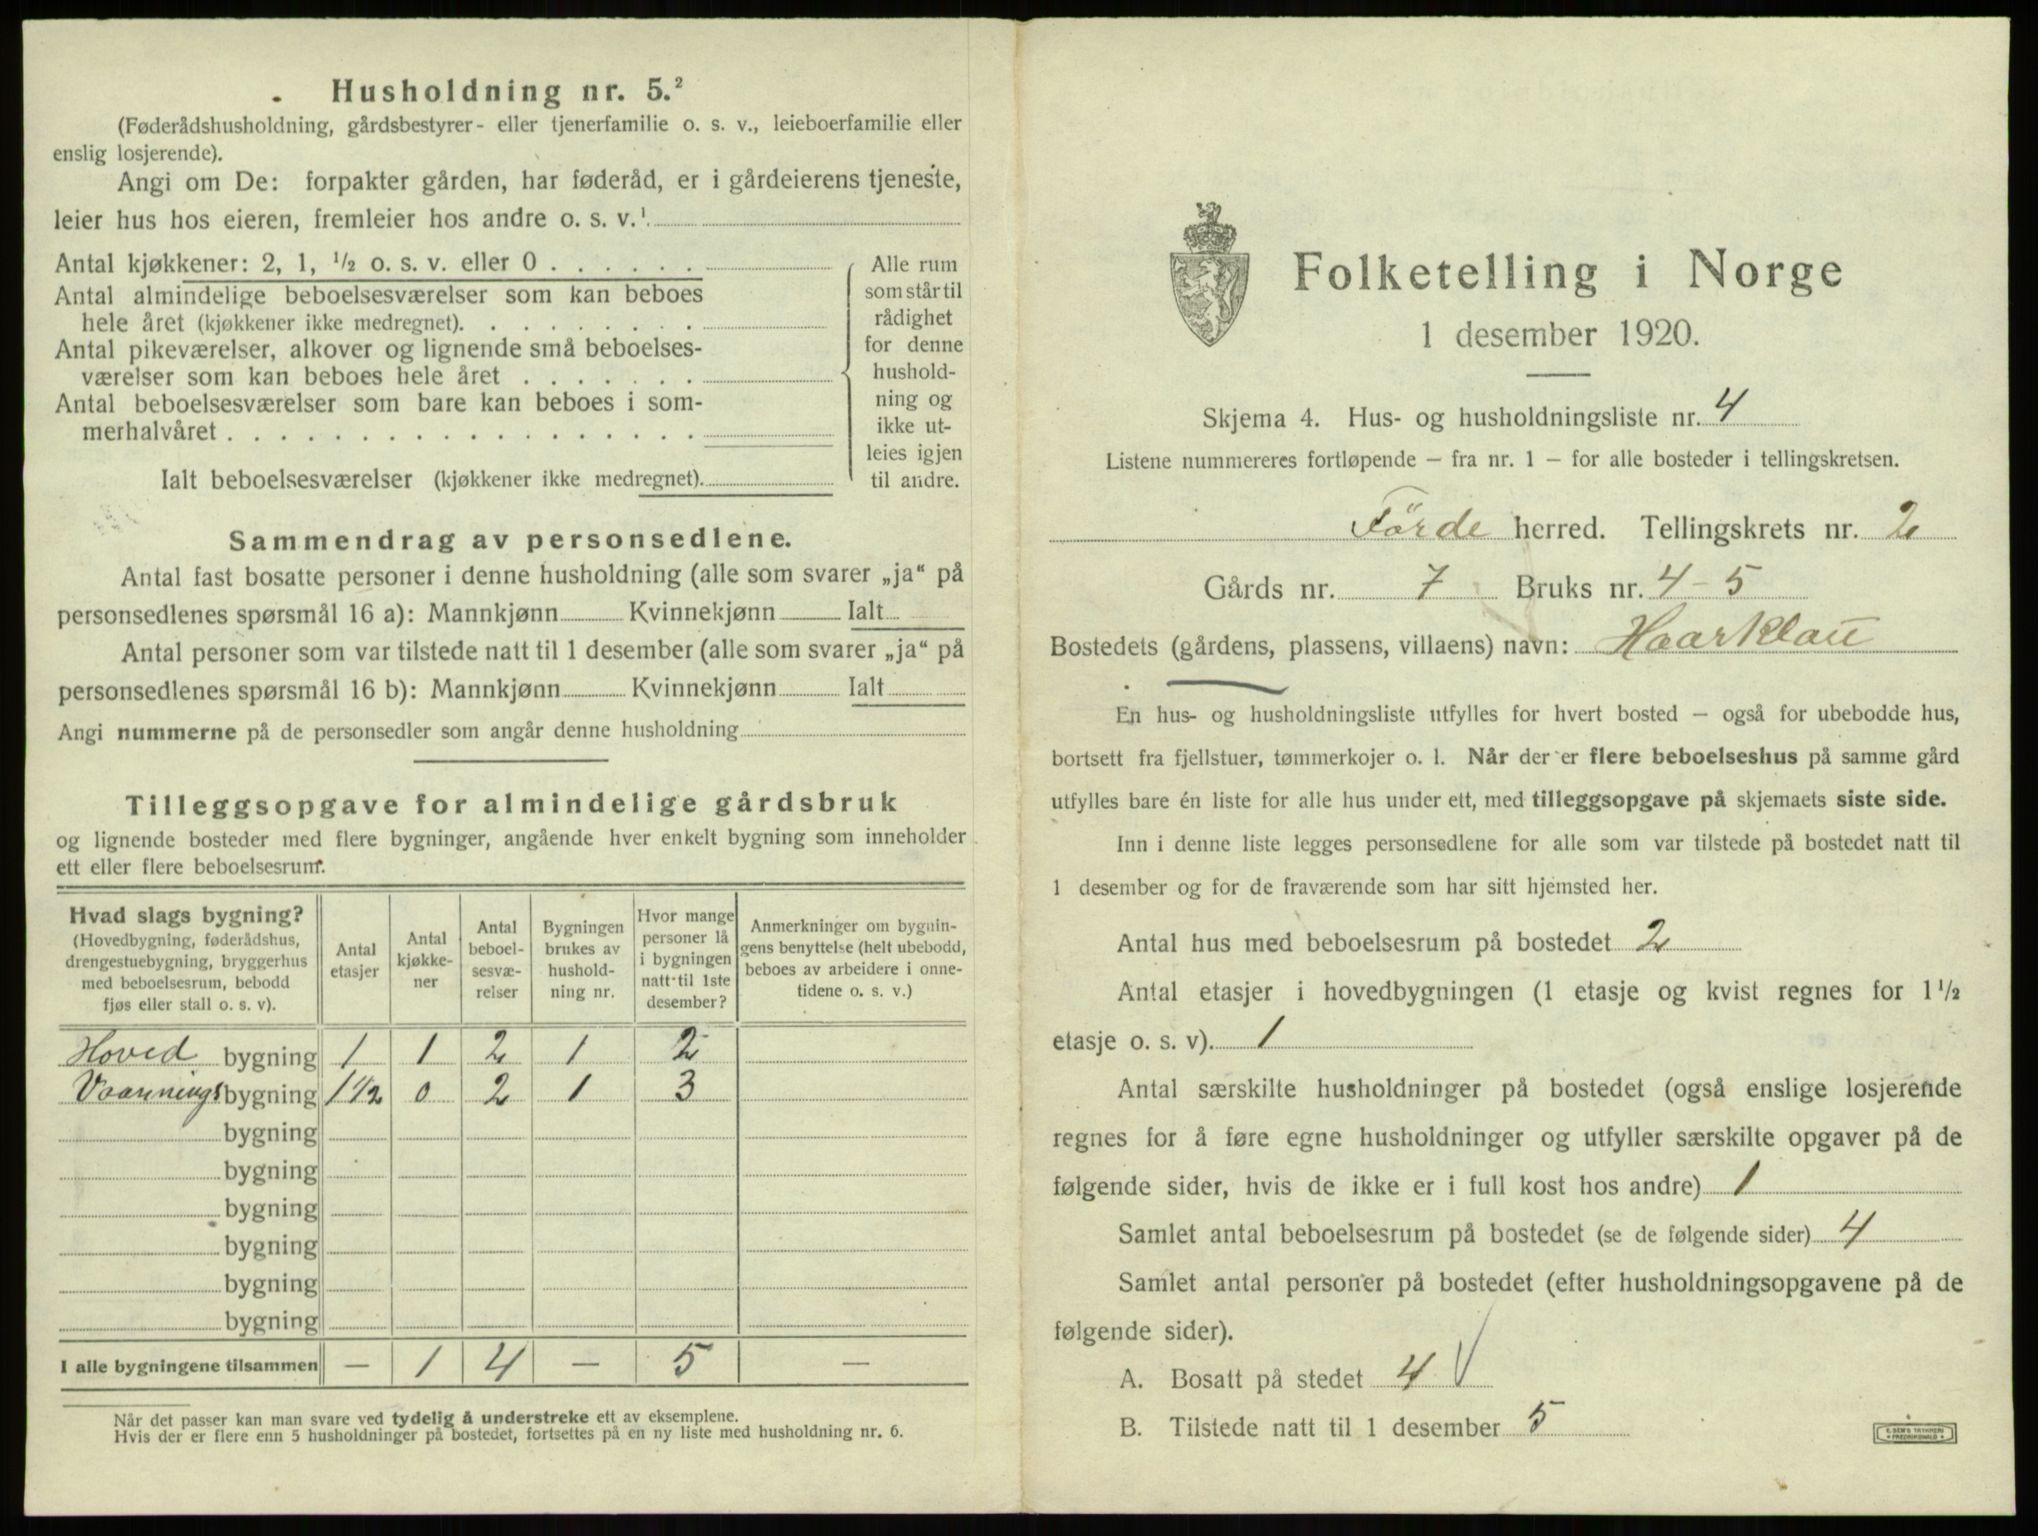 Husholdning nr. 5.²
(Føderådshusholdning, gårdsbestyrer- eller tjenerfamilie o. s. v., leieboerfamilie eller
enslig losjerende).
Angi om De: forpakter gården, har føderåd, er i gårdeierens tjeneste,
leier hus hos eieren, fremleier hos andre o. s. v.¹
Antal kjøkkener: 2, 1, ½ o. s. v. eller 0 . . . . . .
Antal almindelige beboelsesværelser som kan beboes
hele året (kjøkkener ikke medregnet). . . . . . . . .
Antal pikeværelser, alkover og lignende små beboelses-
værelser som kan beboes hele året . . . . . . .
Antal beboelsesværelser som bare kan beboes i som-
merhalvåret . . . . . . . . . . . . . . . . . .
Ialt beboelsesværelser (kjøkkener ikke medregnet).
Alle rum
som står til
rådighet
for denne
hushold-
ning og
ikke ut-
leies igjen
til andre.
Sammendrag av personsedlene.
Antal fast bosatte personer i denne husholdning (alle som svarer „ja“ på
personsedlenes spørsmål 16 a): Mannkjønn Kvinnekjønn Ialt
Antal personer som var tilstede natt til 1 desember (alle som svarer „ja“ på
personsedlenes spørsmål 16 b): Mannkjønn Kvinnekjønn Ialt
Angi nummerne på de personsedler som angår denne husholdning
Tilleggsopgave for almindelige gårdsbruk
og lignende bosteder med flere bygninger, angående hver enkelt bygning som inneholder
ett eller flere beboelsesrum.
Hvad slags bygning?
(Hovedbygning, føderådshus,
drengestuebygning, bryggerhus
med beboelsesrum, bebodd
fjøs eller stall o. s. v).
Antal
etasjer
Antal
kjøkke-
ner
Antal
beboel-
sesvæ-
relser
Bygningen
brukes av
hushold-
ning nr.
Hvor mange
personer lå
i bygningen
natt til 1ste
desember?
Anmerkninger om bygnin-
gens benyttelse (helt ubebodd,
beboes av arbeidere i onne-
tidene o. s. v.)
Hoved bygning 1 1 2 1 2
Vaannings bygning 1 1/2 0 2 1 3
bygning
bygning
bygning
bygning
bygning
bygning
I alle bygningene tilsammen — 1 4 — 5 —
Når det passer kan man svare ved tydelig å understreke ett av eksemplene.
Hvis der er flere enn 5 husholdninger på bostedet, fortsettes på en ny liste med husholdning nr. 6.
Folketelling i Norge
1 desember 1920.
Skjema 4. Hus- og husholdningsliste nr. 4
Listene nummereres fortløpende — fra nr. 1 — for alle bosteder i tellingskretsen.
Förde herred. Tellingskrets nr. 2
Gårds nr. 7 Bruks nr. 4-5
Bostedets (gårdens, plassens, villaens) navn: Haarklau
En hus- og husholdningsliste utfylles for hvert bosted — også for ubebodde hus,
bortsett fra fjellstuer, tømmerkojer o. l. Når der er flere beboelseshus på samme gård
utfylles bare én liste for alle hus under ett, med tilleggsopgave på skjemaets siste side.
Inn i denne liste legges personsedlene for alle som var tilstede på bostedet natt til
1 desember og for de fraværende som har sitt hjemsted her.
Antal hus med beboelsesrum på bostedet 2
Antal etasjer i hovedbygningen (1 etasje og kvist regnes for 1½
etasje o. s. v). 1
Antal særskilte husholdninger på bostedet (også enslige losjerende
regnes for å føre egne husholdninger og utfyller særskilte opgaver på de
følgende sider, hvis de ikke er i full kost hos andre) 1
Samlet antal beboelsesrum på bostedet (se de følgende sider) 4
Samlet antal personer på bostedet (efter husholdningsopgavene på de
følgende sider).
A. Bosatt på stedet 4 √
B. Tilstede natt til 1 desember 5